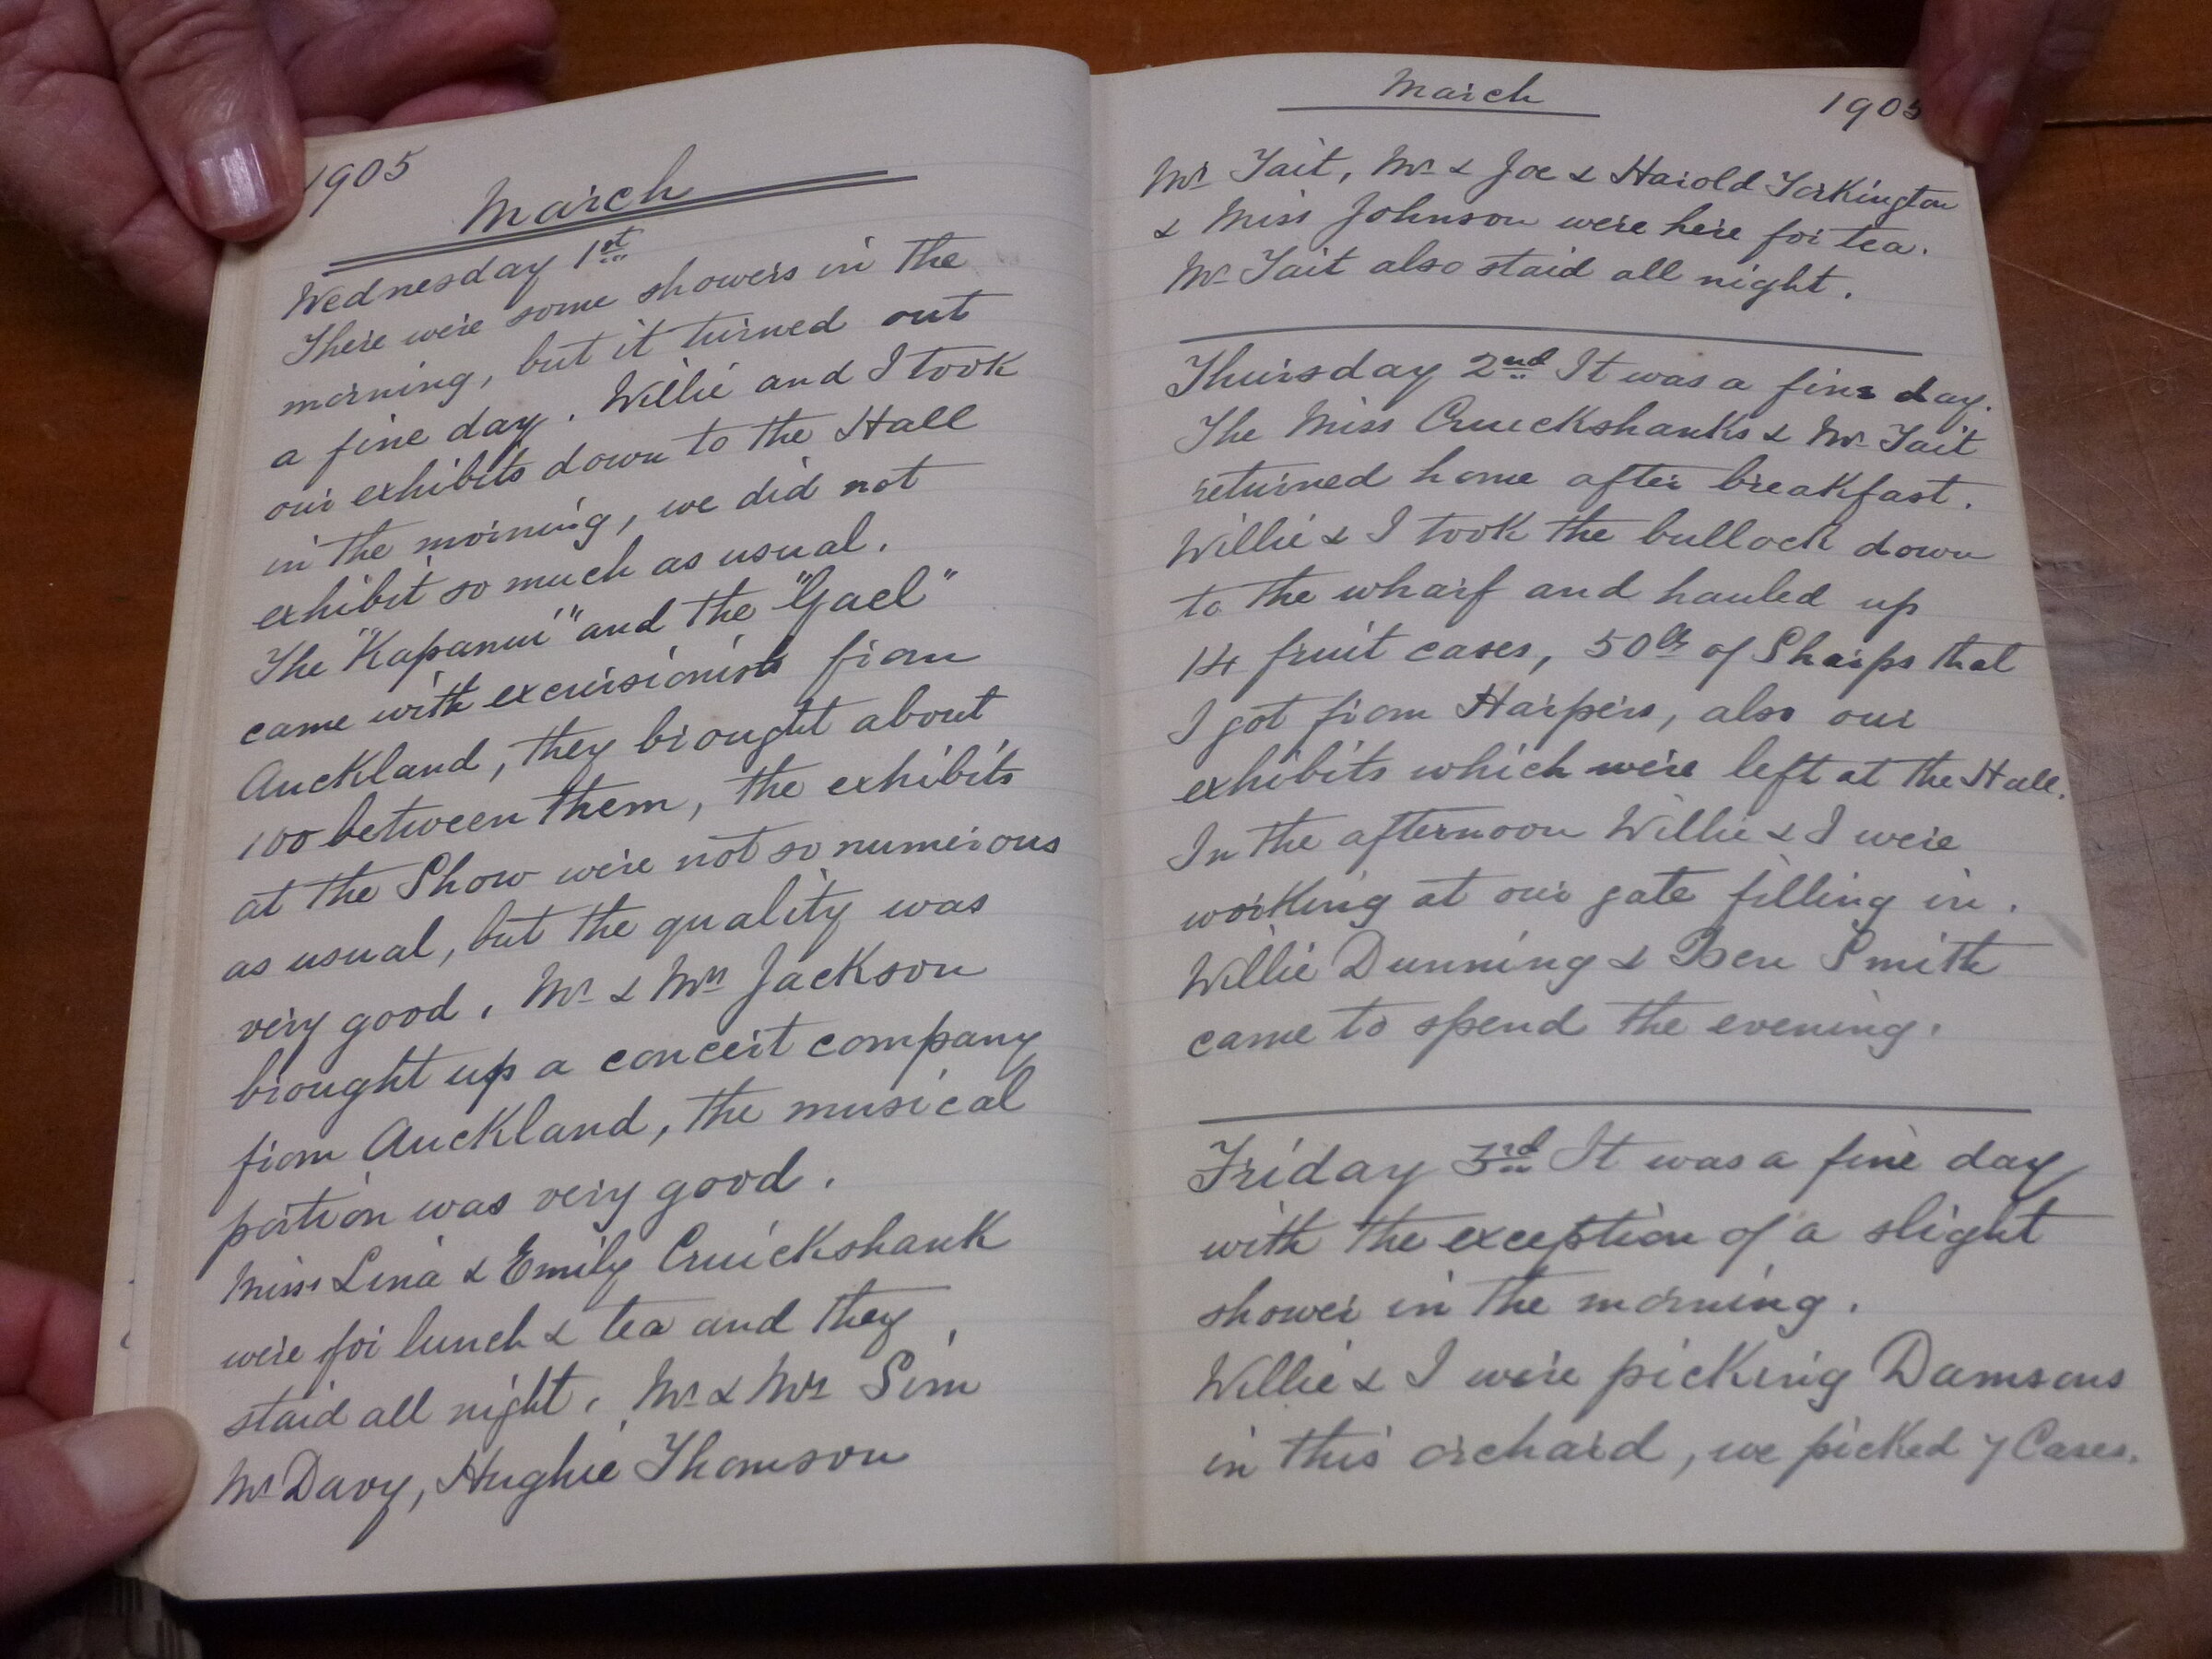 1905
March
Wednesday 1st
There were some showers in the
morning, but it turned out
a fine day. Willie and I took
our exhibits down to the Hall
in the morning, we did not
exhibit so much as usual.
The "Kapanui" and the "Gael"
came with excursionists from
Auckland, they brought about
100 between them, the exhibits
at the Show were not so numerous
as usual, but the quality was
very good. Mr & Mrs Jackson
brought up a concert company
from Auckland, the musical
portion was very good.
Miss Lina & Emily Cruickshank
were for lunch & tea and they
staid all night. Mr & Mrs Sim
Mr Davy, Hughie Thomson
March 1905
Mr Tait, Mr & Joe & Harold Torkington
& Miss Johnson were here for tea.
Mr Tait also staid all night.
Thursday 2nd It was a fine day.
The Miss Cruickshanks & Mr Tait
returned home after breakfast.
Willie & I took the bullock down
to the wharf and hauled up
14 fruit cases, 50lb of Sharps that
I got from Harpers, also our
exhibits which were left at the Hall.
In the afternoon Willie & I were
working at our gate filling in.
Willie Dunning & Ben Smith
came to spend the evening.
Friday 3rd It was a fine day
with the exception of a slight
shower in the morning.
Willie & I were picking Damsons
in this orchard, we picked 7 Cases.